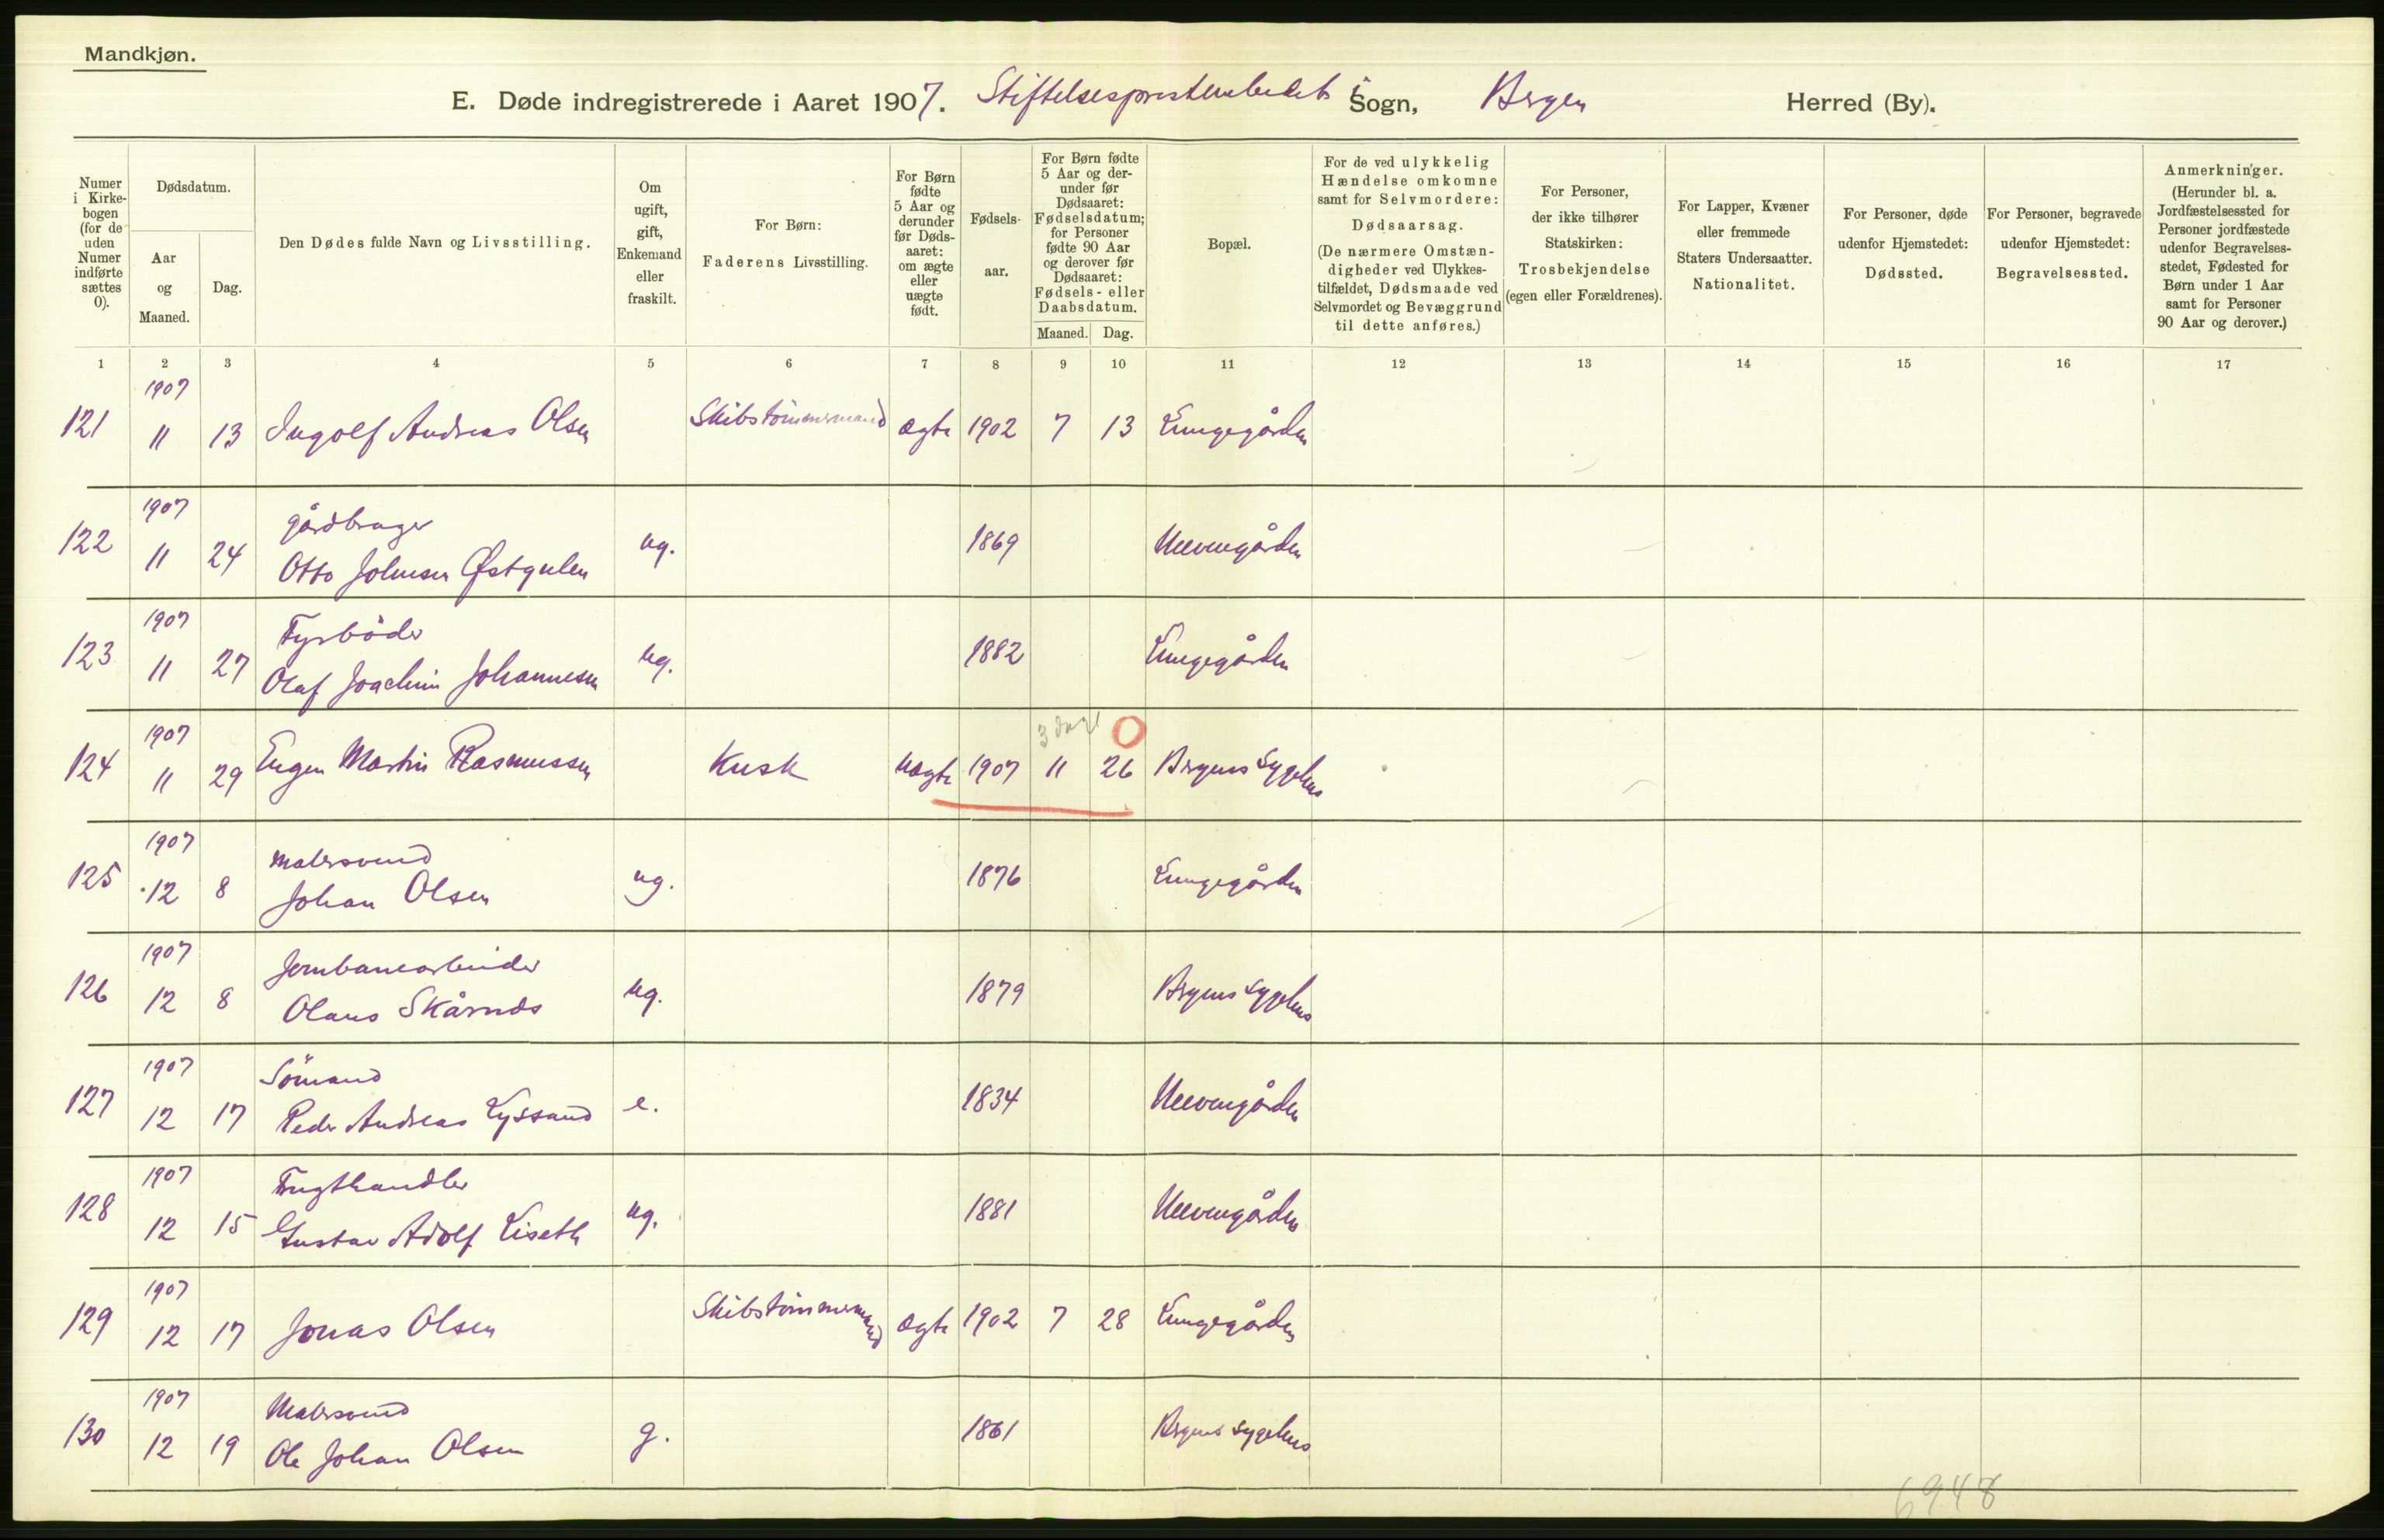 Mandkjøn.
E. Døde indregistrerede i Aaret 1907. Stiftelsesprestembedet i Sogn, Bergen Herred (By).
Numer i Kirkebogen (for de uden Numer indførte sættes 0).
Dødsdatum.
Aar og Maaned.
Dag.
Den Dødes fulde Navn og Livsstilling.
Om ugift, gift, Enkemand eller fraskilt.
For Børn: Faderens Livsstilling.
For Børn fødte 5 Aar og derunder før Dødsaaret: om ægte eller uægte født.
Fødselsaar.
For Børn fødte 5 Aar og derunder før Dødsaaret: Fødselsdatum; for Personer fødte 90 Aar og derover før Dødsaaret: Fødsels- eller Daabsdatum.
Maaned. Dag.
Bopæl.
For de ved ulykkelig Hændelse omkomne samt for Selvmordere: Dødsaarsag. (De nærmere Omstændigheder ved Ulykkestilfældet, Dødsmaade ved Selvmordet og Bevæggrund til dette anføres.)
For Personer, der ikke tilhører Statskirken: Trosbekjendelse (egen eller Forældrenes).
For Lapper, Kvæner eller fremmede Staters Undersaatter. Nationalitet.
For Personer, døde udenfor Hjemstedet: Dødssted.
For Personer, begravede udenfor Hjemstedet: Begravelsessted.
Anmerkninger. (Herunder bl. a. Jordfæstelsessted for Personer jordfæstede udenfor Begravelsesstedet, Fødested for Børn under 1 Aar samt for Personer 90 Aar og derover.)
1 2 3 4 5 6 7 8 9 10 11 12 13 14 15 16 17
1907
121 11 13 Ingolf Andreas Olsen Skibstömmermand ægte 1902 7 13 Lungegården
1907 gårdbruger
122 11 24 Otto Johnsen Østgulen ug. 1869 Neevengården
1907 Fyrböder
123 11 27 Olaf Joachim Johannesen ug. 1882 Lungegården
1907 3 dage 0
124 11 29 Eugen Martin Rasmussen Kusk uægte 1907 11 26 Bergens Sygehus
1907 Malersvend
125 12 8 Johan Olsen ug. 1876 Lungegården
1907 Jernbanearbeider
126 12 8 Olaus Skårnds ug. 1879 Bergens Sygehus
1907 Sömand
127 12 17 Peder Andreas Lyssand e. 1834 Neevengården
1907 Frugthandler
128 12 15 Gustav Adolf Liseth ug. 1881 Neevengården
1907
129 12 17 Jonas Olsen Skibstömmermand ægte 1902 7 28 Lungegården
1907 Malersvend
130 12 19 Ole Johan Olsen g. 1861 Bergens Sygehus
6948